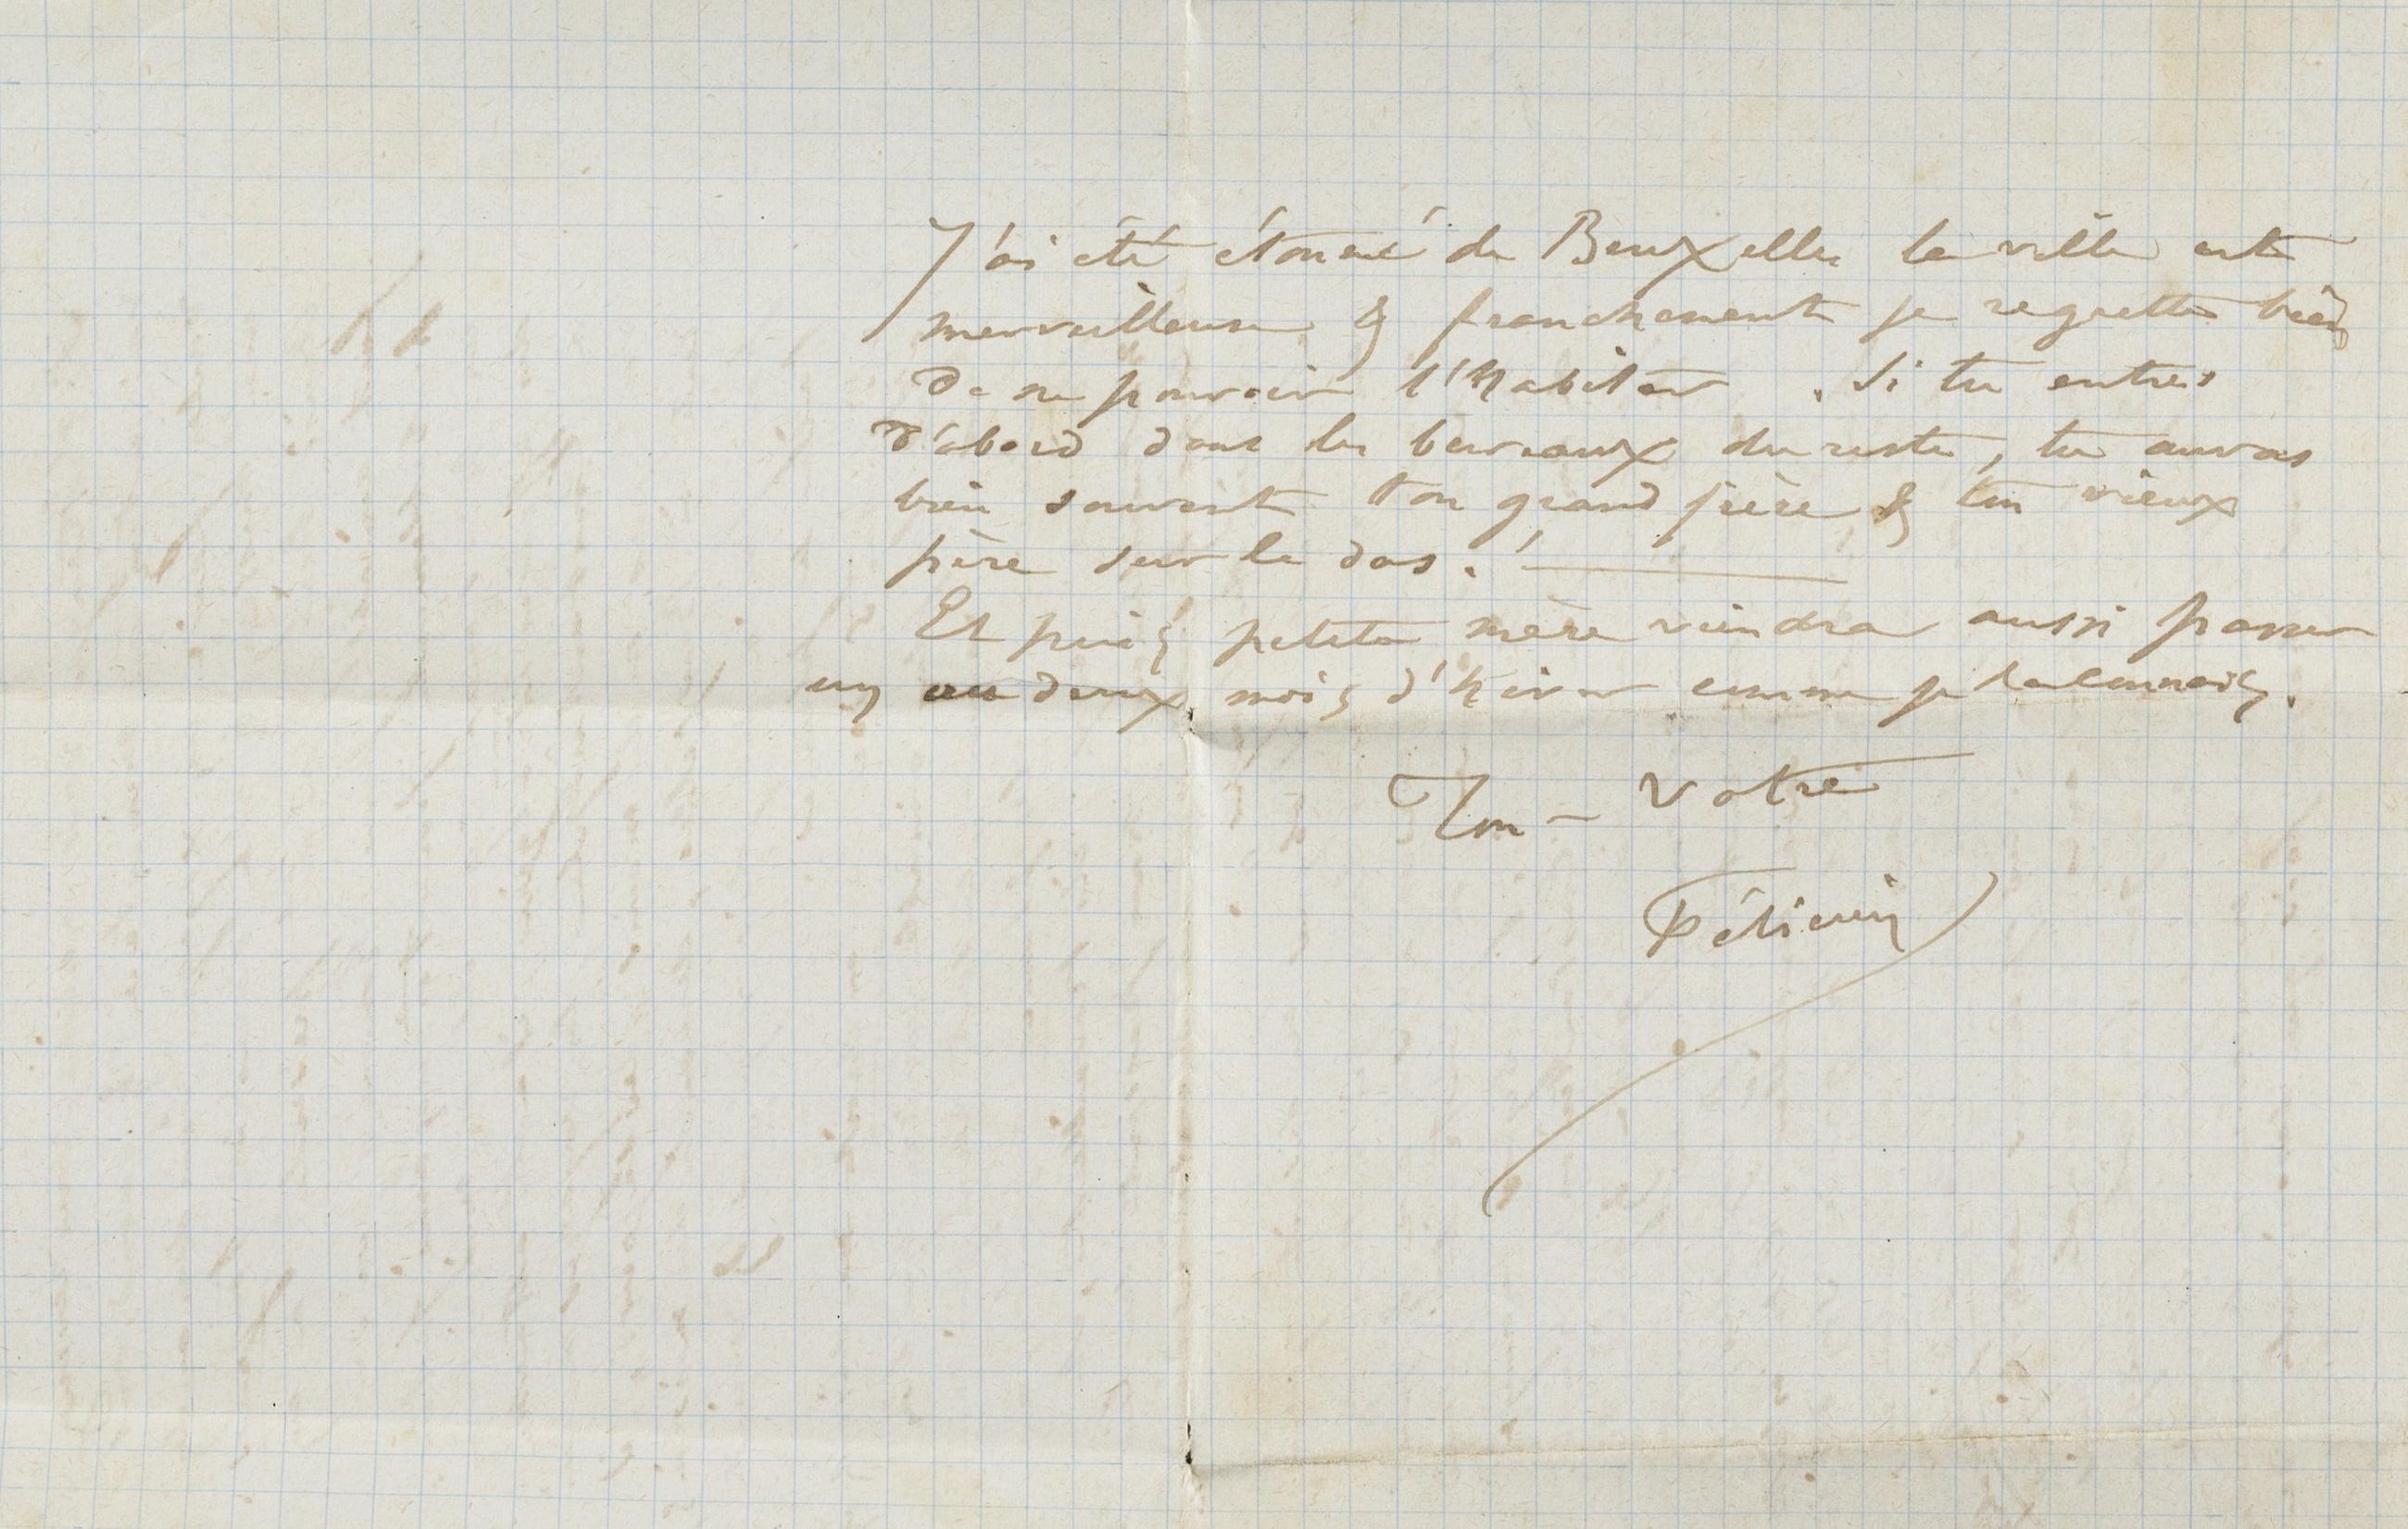 J'ai été étonné de Bruxelles la ville est
merveilleuse & franchement je regrette bien
de ne pouvoir l'habiter . Si tu entres
d'abord dans les bureaux du reste, tu auras
bien souvent ton grand frère & ton vieux
père sur le dos. !
Et puis petite mère viendra aussi passer
un ou deux mois d'hiver comme je la connais.
Ton – Votre
Félicien